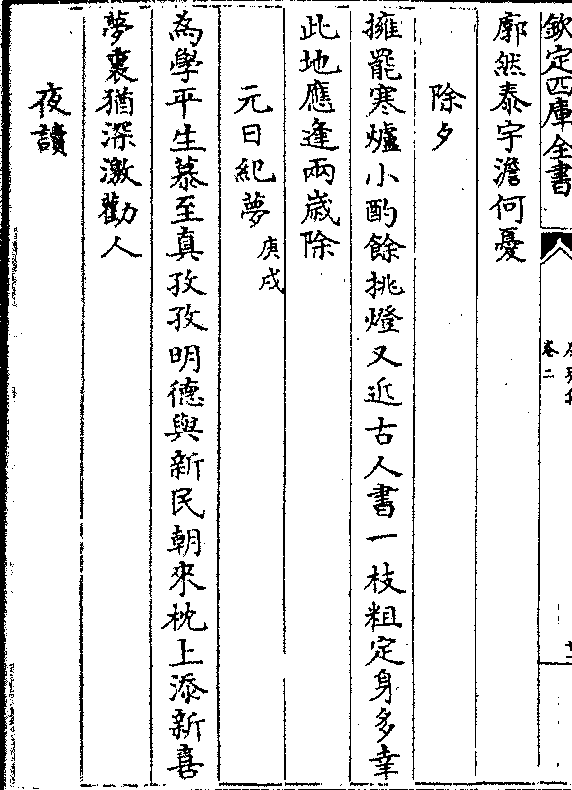 欽定四庫全書
卷二
廓然泰宇澹何憂
除夕
擁罷寒爐小酌餘挑燈又近古人書一枝粗定身多幸
此地應逢兩歲除
元日紀夢庚戌
為學平生慕至真孜孜明德與新民朝來枕上添新喜
夢裏猶深激勸人
夜讀